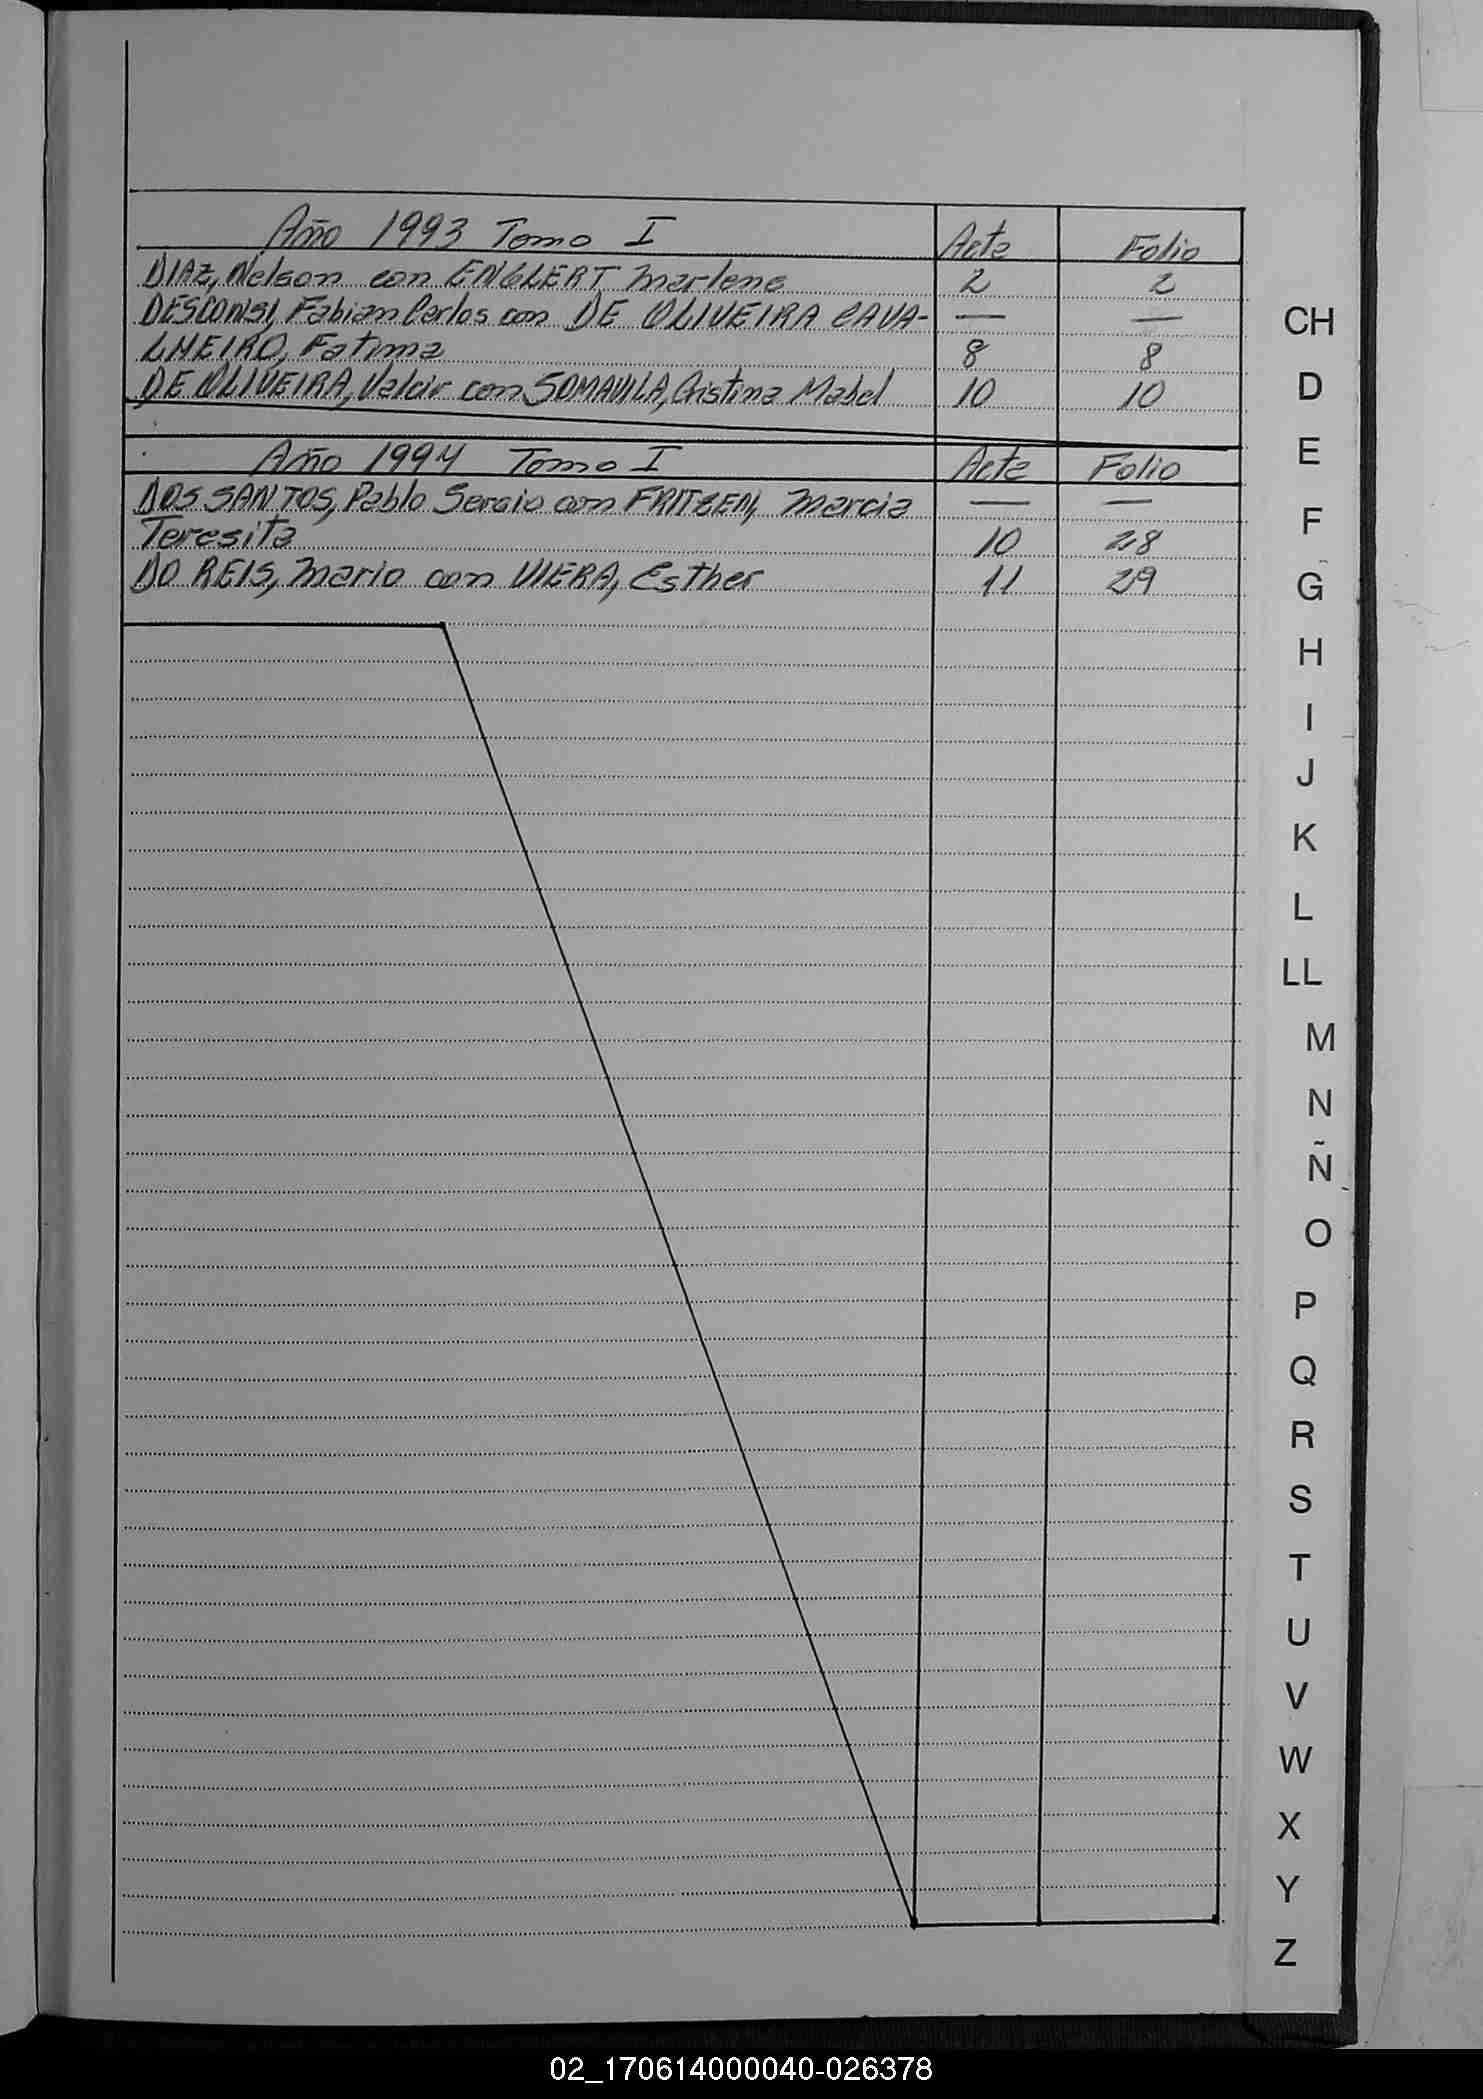 Año 1993 Tomo I Acta Folio
DIAZ, Nelson con ENGLERT Marlene 2 2
DESCONSI, Fabian Carlos con DE OLIVEIRA CAVA- — —
LHEIRO, Fatima 8 8
DE OLIVEIRA, Valcir con SOMAVILA, Cristina Mabel 10 10
Año 1994 Tomo I Acta Folio
DOS SANTOS, Pablo Sergio con FRITZEN, Marcia — —
Teresita 10 28
DO REIS, Mario con VIERA, Esther 11 29
CH
D
E
F
G
H
I
J
K
L
LL
M
N
Ñ
O
P
Q
R
S
T
U
V
W
X
Y
Z
02_170614000040-026378